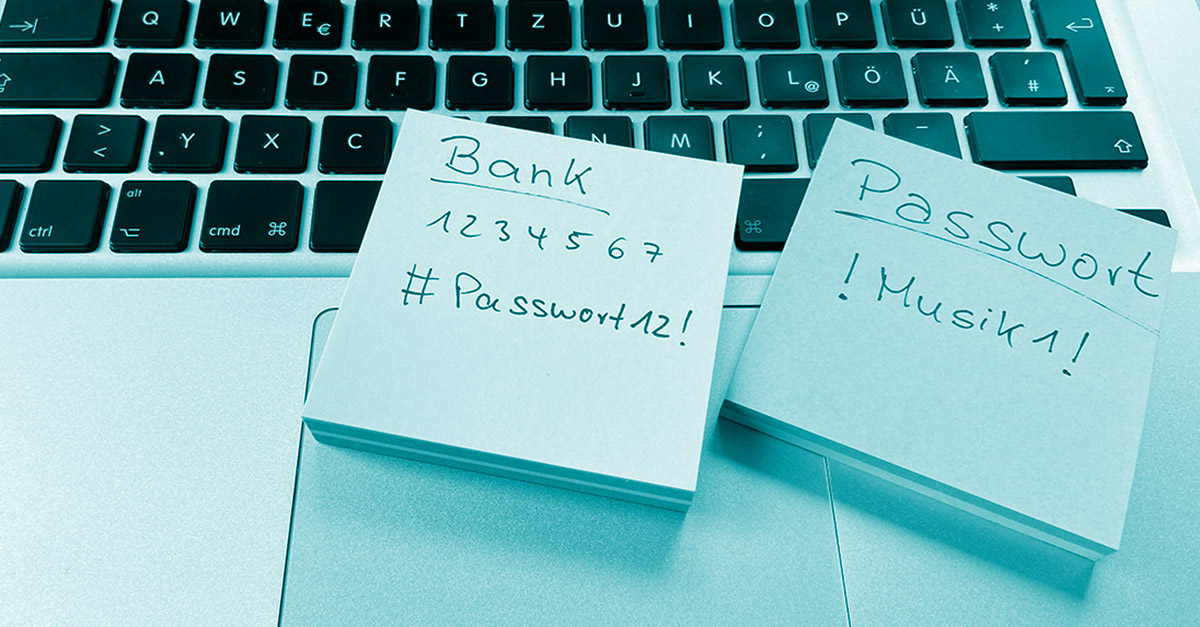 Q W E € R T Z U I O P Ü * +
A S D F G H J K L @ Ö Ä ' #
> < Y X C N M ; , _
ctrl alt cmd ⌘ ⌘
Bank
1234567
#Passwort12!
Passwort
!Musik1!